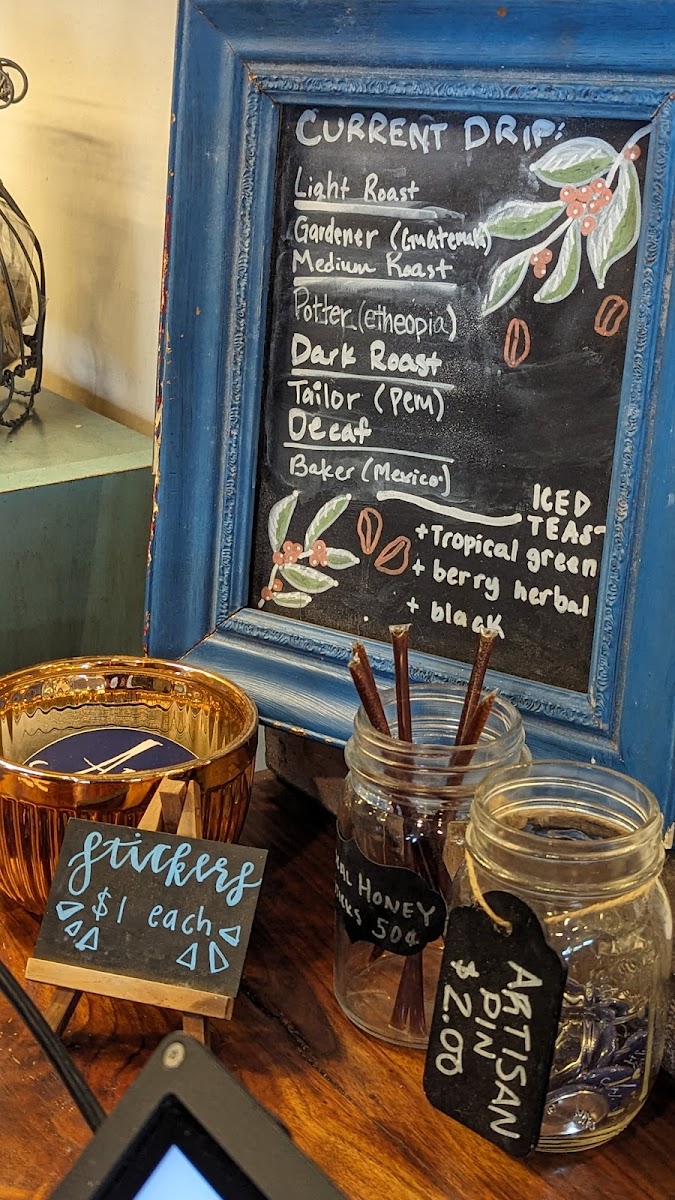 CURRENT DRIP:
Light Roast
Gardener (Guatemala)
Medium Roast
Potter (etheopia)
Dark Roast
Tailor (Peru)
Decaf
Baker (Mexico)
ICED
TEAS
+Tropical green
+ berry herbal
+ black
stickers
$1 each
HONEY
50¢
ARTISAN
PIN
$2.00